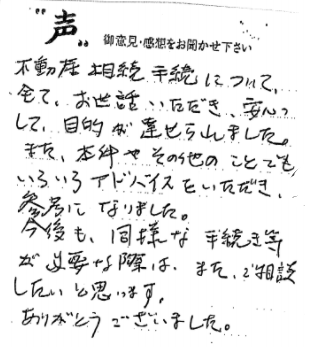 "声"
御意見・感想をお聞かせ下さい
不動産相続手続について、
全て、お世話いただき、安心
して、目的が達せられました。
また、本件やその他のことでも
いろいろアドバイスをいただき、
参考になりました。
今後も、同様な手続き等
が必要な際は、また、ご相談
したいと思います。
ありがとうございました。